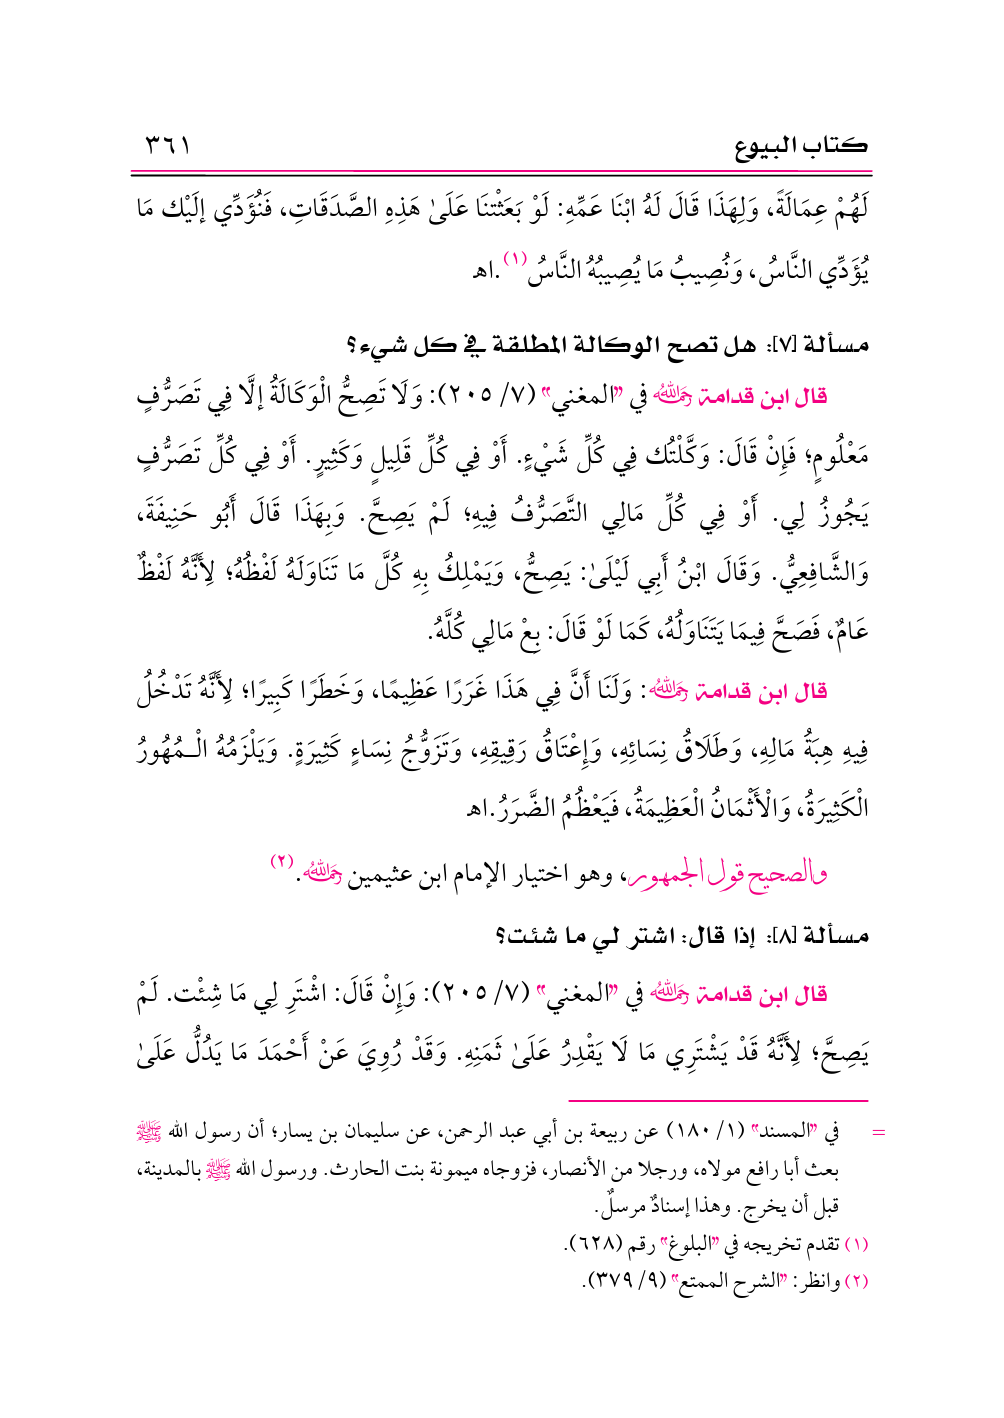 كتاب البيوع ٣٦١
لَهُمْ عِمَالَةً، وَلِهَذَا قَالَ لَهُ ابْنَا عَمِّهِ: لَوْ بَعَثْتنَا عَلَىٰ هَذِهِ الصَّدَقَاتِ، فَنُؤَدِّي إلَيْك مَا
يُؤَدِّي النَّاسُ، وَنُصِيبُ مَا يُصِيبُهُ النَّاسُ (١).اهـ
مسألة [٧]: هل تصح الوكالة المطلقة في كل شيء؟
قال ابن قدامة رحمه الله في "المغني" (٧/ ٢٠٥): وَلَا تَصِحُّ الْوَكَالَةُ إلَّا فِي تَصَرُّفٍ
مَعْلُومٍ؛ فَإِنْ قَالَ: وَكَّلْتُك فِي كُلِّ شَيْءٍ. أَوْ فِي كُلِّ قَلِيلٍ وَكَثِيرٍ. أَوْ فِي كُلِّ تَصَرُّفٍ
يَجُوزُ لِي. أَوْ فِي كُلِّ مَالِي التَّصَرُّفُ فِيهِ؛ لَمْ يَصِحَّ. وَبِهَذَا قَالَ أَبُو حَنِيفَةَ،
وَالشَّافِعِيُّ. وَقَالَ ابْنُ أَبِي لَيْلَىٰ: يَصِحُّ، وَيَمْلِكُ بِهِ كُلَّ مَا تَنَاوَلَهُ لَفْظُهُ؛ لِأَنَّهُ لَفْظٌ
عَامٌ، فَصَحَّ فِيمَا يَتَنَاوَلُهُ، كَمَا لَوْ قَالَ: بِعْ مَالِي كُلَّهُ.
قال ابن قدامة رحمه الله: وَلَنَا أَنَّ فِي هَذَا غَرَرًا عَظِيمًا، وَخَطَرًا كَبِيرًا؛ لِأَنَّهُ تَدْخُلُ
فِيهِ هِبَةُ مَالِهِ، وَطَلَاقُ نِسَائِهِ، وَإِعْتَاقُ رَقِيقِهِ، وَتَزَوُّجُ نِسَاءٍ كَثِيرَةٍ. وَيَلْزَمُهُ الْـمُهُورُ
الْكَثِيرَةُ، وَالْأَثْمَانُ الْعَظِيمَةُ، فَيَعْظُمُ الضَّرَرُ.اهـ
والصحيح قول الجمهور، وهو اختيار الإمام ابن عثيمين رحمه الله.(٢)
مسألة [٨]: إذا قال: اشتر لي ما شئت؟
قال ابن قدامة رحمه الله في "المغني" (٧/ ٢٠٥): وَإِنْ قَالَ: اشْتَرِ لِي مَا شِئْت. لَمْ
يَصِحَّ؛ لِأَنَّهُ قَدْ يَشْتَرِي مَا لَا يَقْدِرُ عَلَىٰ ثَمَنِهِ. وَقَدْ رُوِيَ عَنْ أَحْمَدَ مَا يَدُلُّ عَلَىٰ
= في "المسند" (١/ ١٨٠) عن ربيعة بن أبي عبد الرحمن، عن سليمان بن يسار؛ أن رسول الله ﷺ
بعث أبا رافع مولاه، ورجلا من الأنصار، فزوجاه ميمونة بنت الحارث. ورسول الله ﷺ بالمدينة،
قبل أن يخرج. وهذا إسنادٌ مرسلٌ.
(١) تقدم تخريجه في "البلوغ" رقم (٦٢٨).
(٢) وانظر: "الشرح الممتع" (٩/ ٣٧٩).